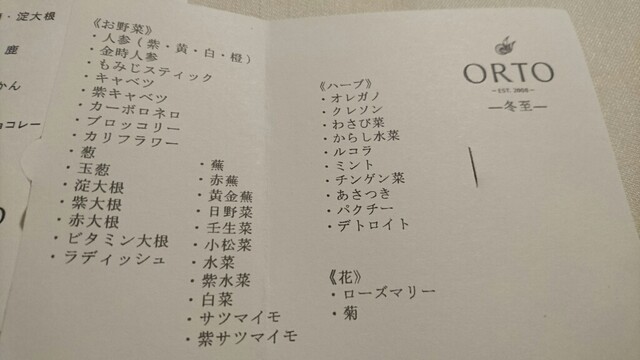 ・淀大根
鹿
かん
コレー
《お野菜》
・人参（紫・黄・白・橙）
・金時人参
・もみじスティック
・キャベツ
・紫キャベツ
・カーボロネロ
・ブロッコリー
・カリフラワー
・葱
・玉葱
・淀大根
・紫大根
・赤大根
・ビタミン大根
・ラディッシュ
・蕪
・赤蕪
・黄金蕪
・日野菜
・壬生菜
・小松菜
・水菜
・紫水菜
・白菜
・サツマイモ
・紫サツマイモ
《ハーブ》
・オレガノ
・クレソン
・わさび菜
・からし水菜
・ルコラ
・ミント
・チンゲン菜
・あさつき
・パクチー
・デトロイト
《花》
・ローズマリー
・菊
ORTO
―EST. 2008―
―冬至―